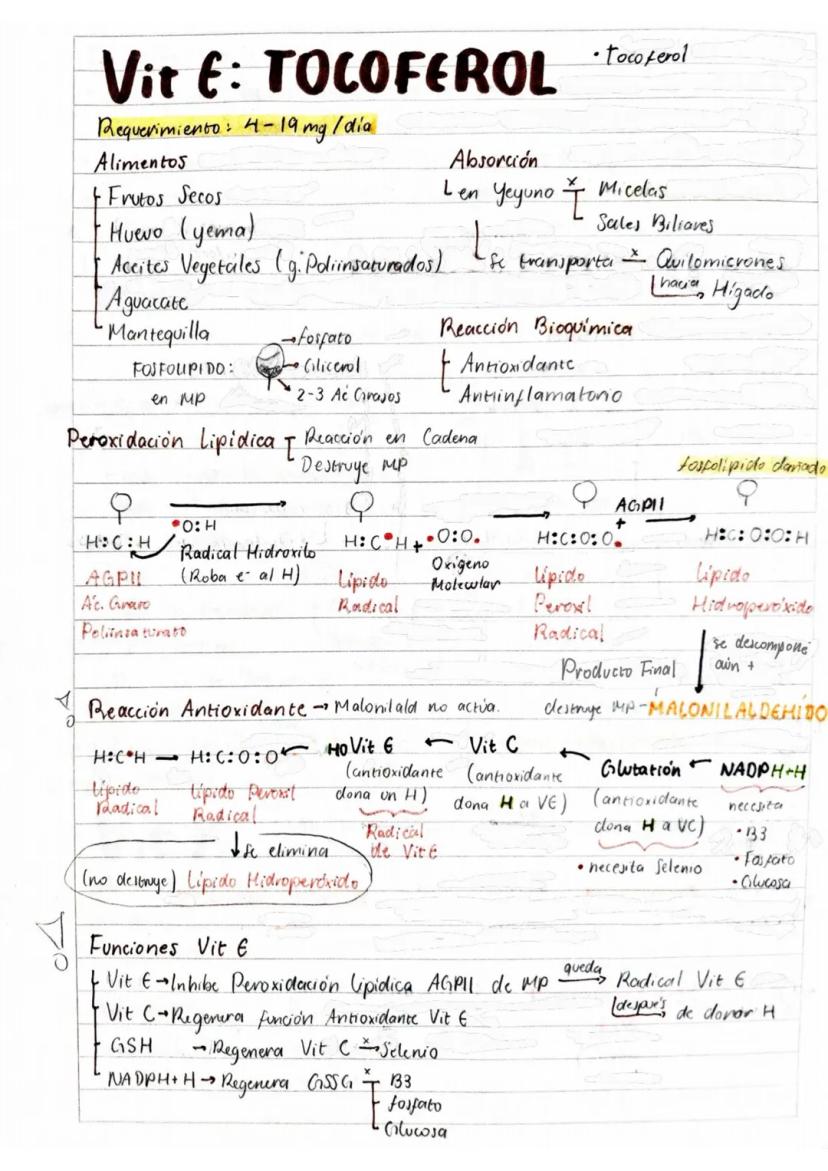 Vit E: TOCOFEROL
• Tocoferol
Requerimiento: 4-19 mg/día
Alimentos
Frutos Secos
Huevo (yema)
Aceites Vegetales (g. Poliinsaturados)
Aguacate
Mantequilla
Absorción
en Yeyuno x Micelas
Sales Biliares
Se transporta x Quilomicrones
hacia Hígado
FOSFOLIPIDO:
en MP
→ Fosfato
→ Glicerol
→ 2-3 Ac Grasos
Reacción Bioquímica
Antioxidante
Antiinflamatorio
Peroxidación Lipídica
Reacción en Cadena
Destruye MP
fosfolípido dañado
H:C:H
•O:H
Radical Hidroxilo
(Roba e- al H)
AGPII
Ác. Graso
Poliinsaturato
H:C•H + •O:O•
Oxígeno
Molecular
Lípido
Radical
H:C:O:O•
+ AGPII
Lípido
Peroxil
Radical
H:C:O:O:H
Lípido
Hidroperóxido
se descompone
aún +
Producto Final
destruye MP - MALONILALDEHÍDO
Reacción Antioxidante → Malonilald no actúa.
H:C•H → H:C:O:O ← HO Vit E ← Vit C ← Glutatión ← NADPH+H
Lípido
Radical
Lípido Peroxil
Radical
(antioxidante
dona un H)
Radical
de Vit E
(antioxidante
dona H a VE)
(antioxidante
dona H a VC)
• necesita Selenio
necesita
• B3
• Fosfato
• Glucosa
↓ Se elimina
(no destruye) Lípido Hidroperóxido
Funciones Vit E
Vit E → Inhibe Peroxidación Lipídica AGPII de MP queda → Radical Vit E
después de donar H
Vit C → Regenera función Antioxidante Vit E
GSH → Regenera Vit C x→ Selenio
NADPH+H → Regenera GSSG x B3
fosfato
Glucosa